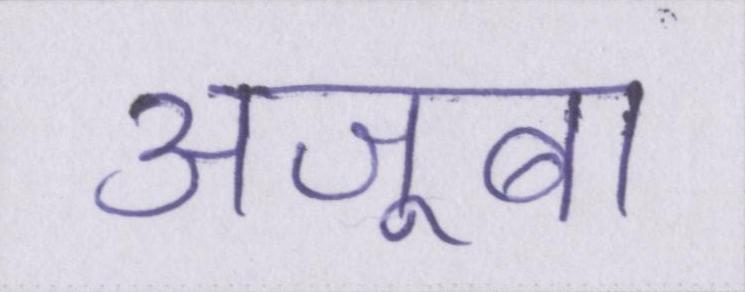 अजूबा